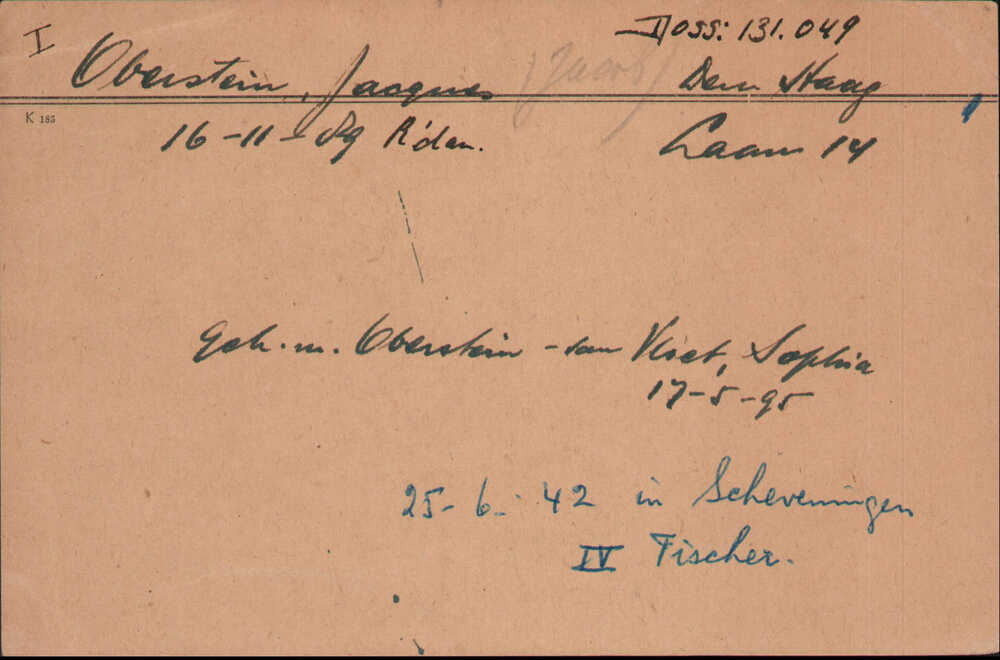 I
Doss: 131.049
Oberstein, Jacques (Jacob) Den Haag
K 185
16-11-89 R'dam. Laan 14
Geh. m. Oberstein - van Vliet, Sophia
17-5-95
25-6-42 in Scheveningen
IV Fischer.